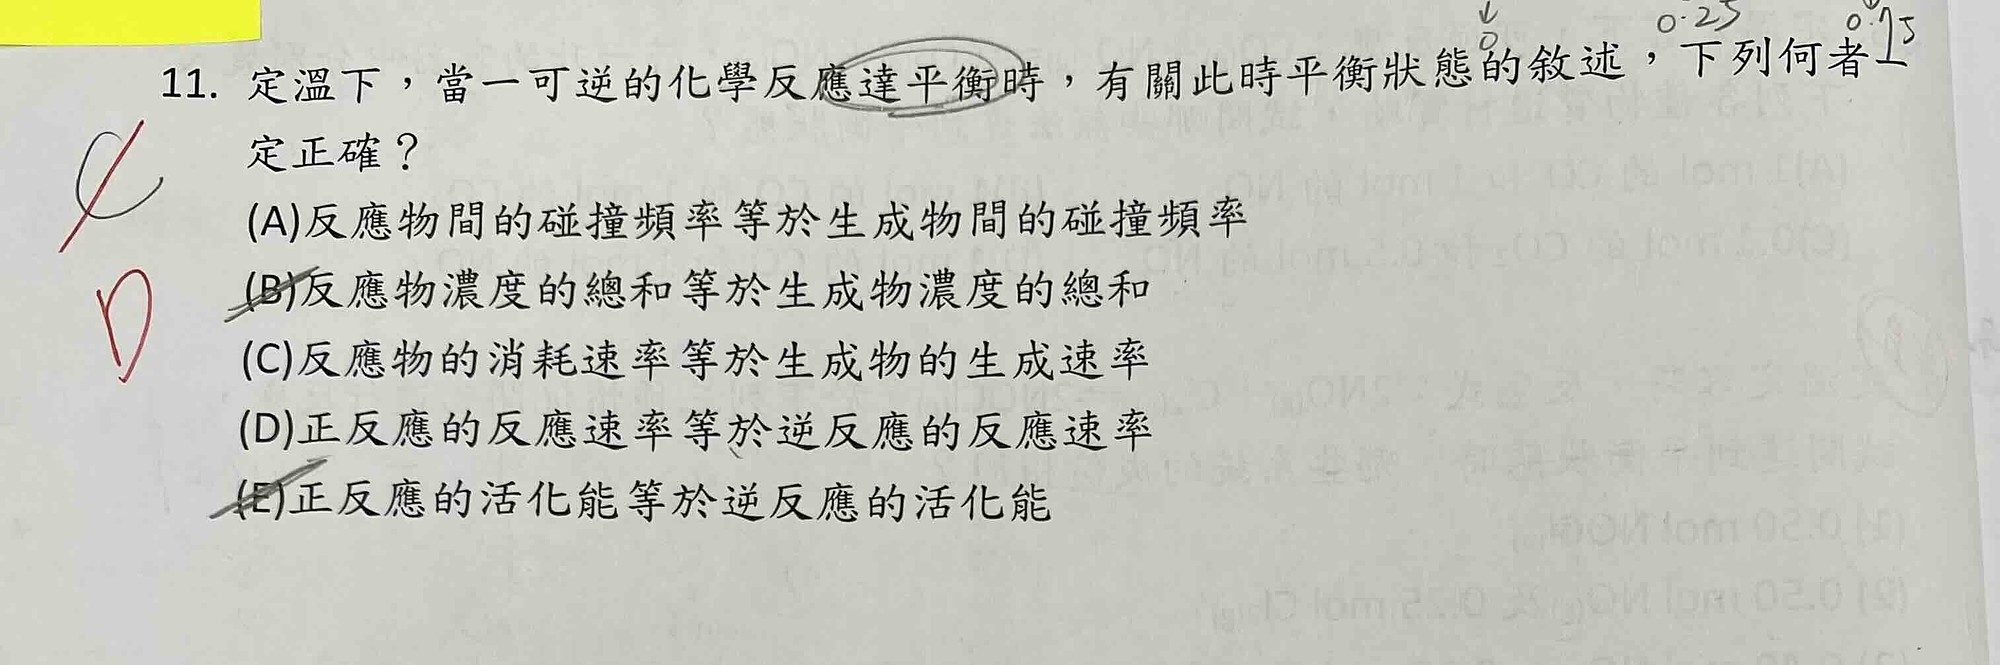 0 0.25 0.75
11. 定溫下，當一可逆的化學反應達平衡時，有關此時平衡狀態的敘述，下列何者一
定正確？
C
(A)反應物間的碰撞頻率等於生成物間的碰撞頻率
(B)反應物濃度的總和等於生成物濃度的總和
D
(C)反應物的消耗速率等於生成物的生成速率
(D)正反應的反應速率等於逆反應的反應速率
(E)正反應的活化能等於逆反應的活化能